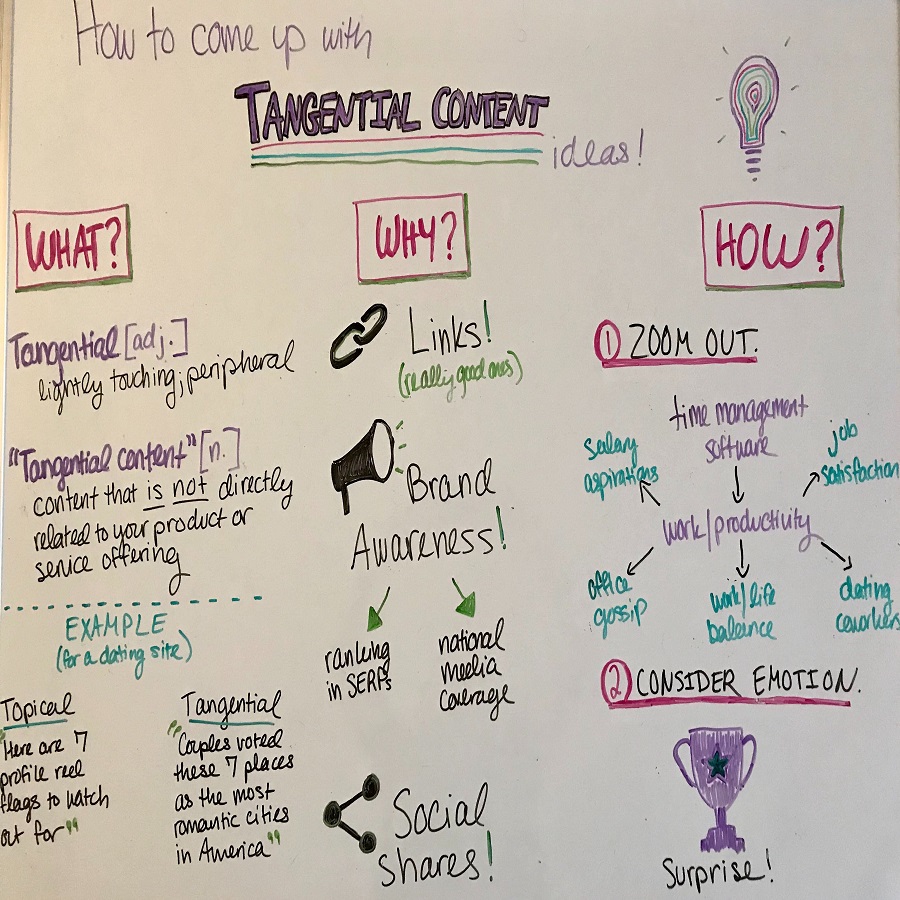 How to come up with
TANGENTIAL CONTENT
ideas!
WHAT?
Tangential [adj.]
lightly touching; peripheral
"Tangential content" [n.]
content that is not directly
related to your product or
service offering
EXAMPLE
(for a dating site)
Topical
"Here are 7
profile reel
flags to watch
out for"
Tangential
"Couples voted
these 7 places
as the most
romantic cities
in America"
WHY?
Links!
(really good ones)
Brand
Awareness!
ranking
in SERPs
national
media
coverage
Social
shares!
HOW?
1 ZOOM OUT.
time management
software
salary
aspirations
job
satisfaction
work/productivity
office
gossip
work/life
balance
dating
coworkers
2 CONSIDER EMOTION.
Surprise!